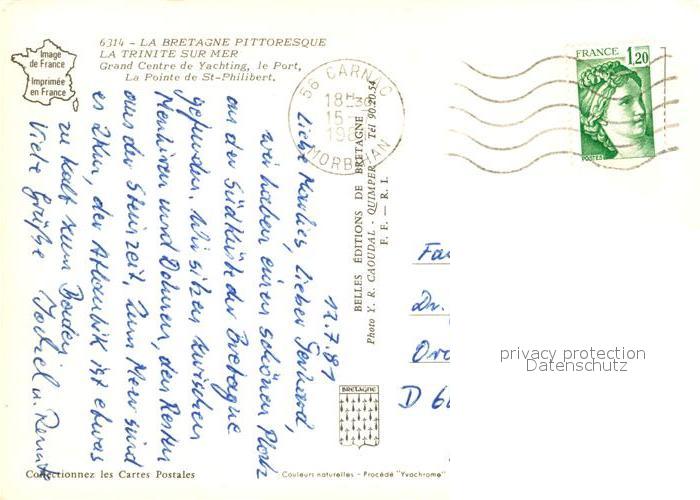 6314 - LA BRETAGNE PITTORESQUE
LA TRINITE SUR MER
Grand Centre de Yachting, le Port,
La Pointe de St-Philibert.
Image
de France
Imprimée
en France
56 CARNAC
18H
15-
MORBIHAN
FRANCE 1,20
POSTES
12.7.81
Liebe Marlies, lieber Gerhard,
wir haben einen schönen Platz
an der Südküste der Bretagne
gefunden. Wir sitzen zwischen
Menhiren und Dolmen, den Resten
aus der Steinzeit. Zum Meer sind
es 2 km, der Atlantik ist etwas
zu kalt zum Baden.
Viele Grüße u. Renate
BELLES ÉDITIONS DE BRETAGNE
Photo Y. R. CAOUDAL - QUIMPER Tél 90.20.54
F. F. — R. I.
Fa
Dr.
D 6
privacy protection
Datenschutz
BRETAGNE
Collectionnez les Cartes Postales
Couleurs naturelles - Procédé "Yvochrome"